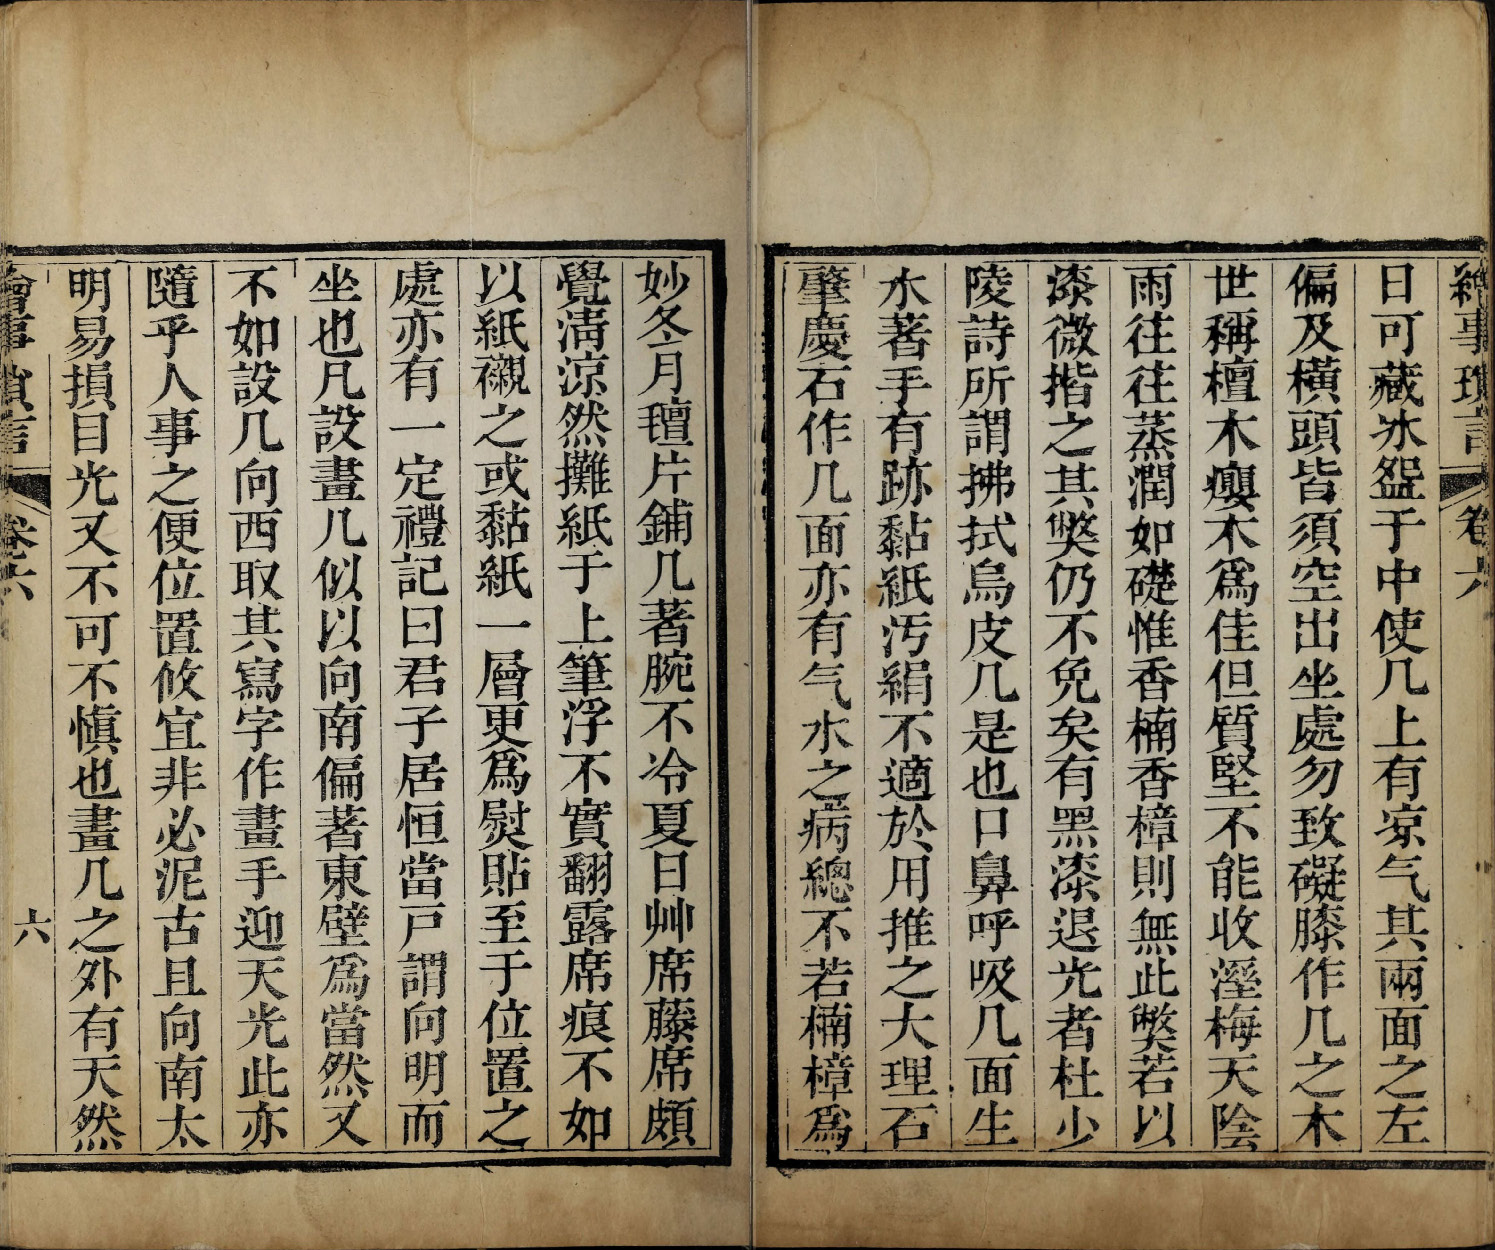 繪事瑣言 卷六
日可藏冰盌于中使几上有凉气其兩面之左
偏及橫頭皆須空出坐處勿致礙膝作几之木
世稱檀木癭木爲佳但質堅不能收溼梅天陰
雨往往蒸潤如礎惟香楠香樟則無此獘若以
漆微揩之其獘仍不免矣有黑漆退光者杜少
陵詩所謂拂拭烏皮几是也口鼻呼吸几面生
水著手有跡黏紙汚絹不適於用推之大理石
肇慶石作几面亦有气水之病總不若楠樟爲
妙冬月氊片鋪几著腕不冷夏日艸席藤席頗
覺淸涼然攤紙于上筆浮不實翻露席痕不如
以紙襯之或黏紙一層更爲熨貼至于位置之
處亦有一定禮記曰君子居恒當戶謂向明而
坐也凡設畫几似以向南偏著東壁爲當然又
不如設几向西取其寫字作畫手迎天光此亦
隨乎人事之便位置攸宜非必泥古且向南太
明易損目光又不可不愼也畫几之外有天然
繪事瑣言 卷六 六